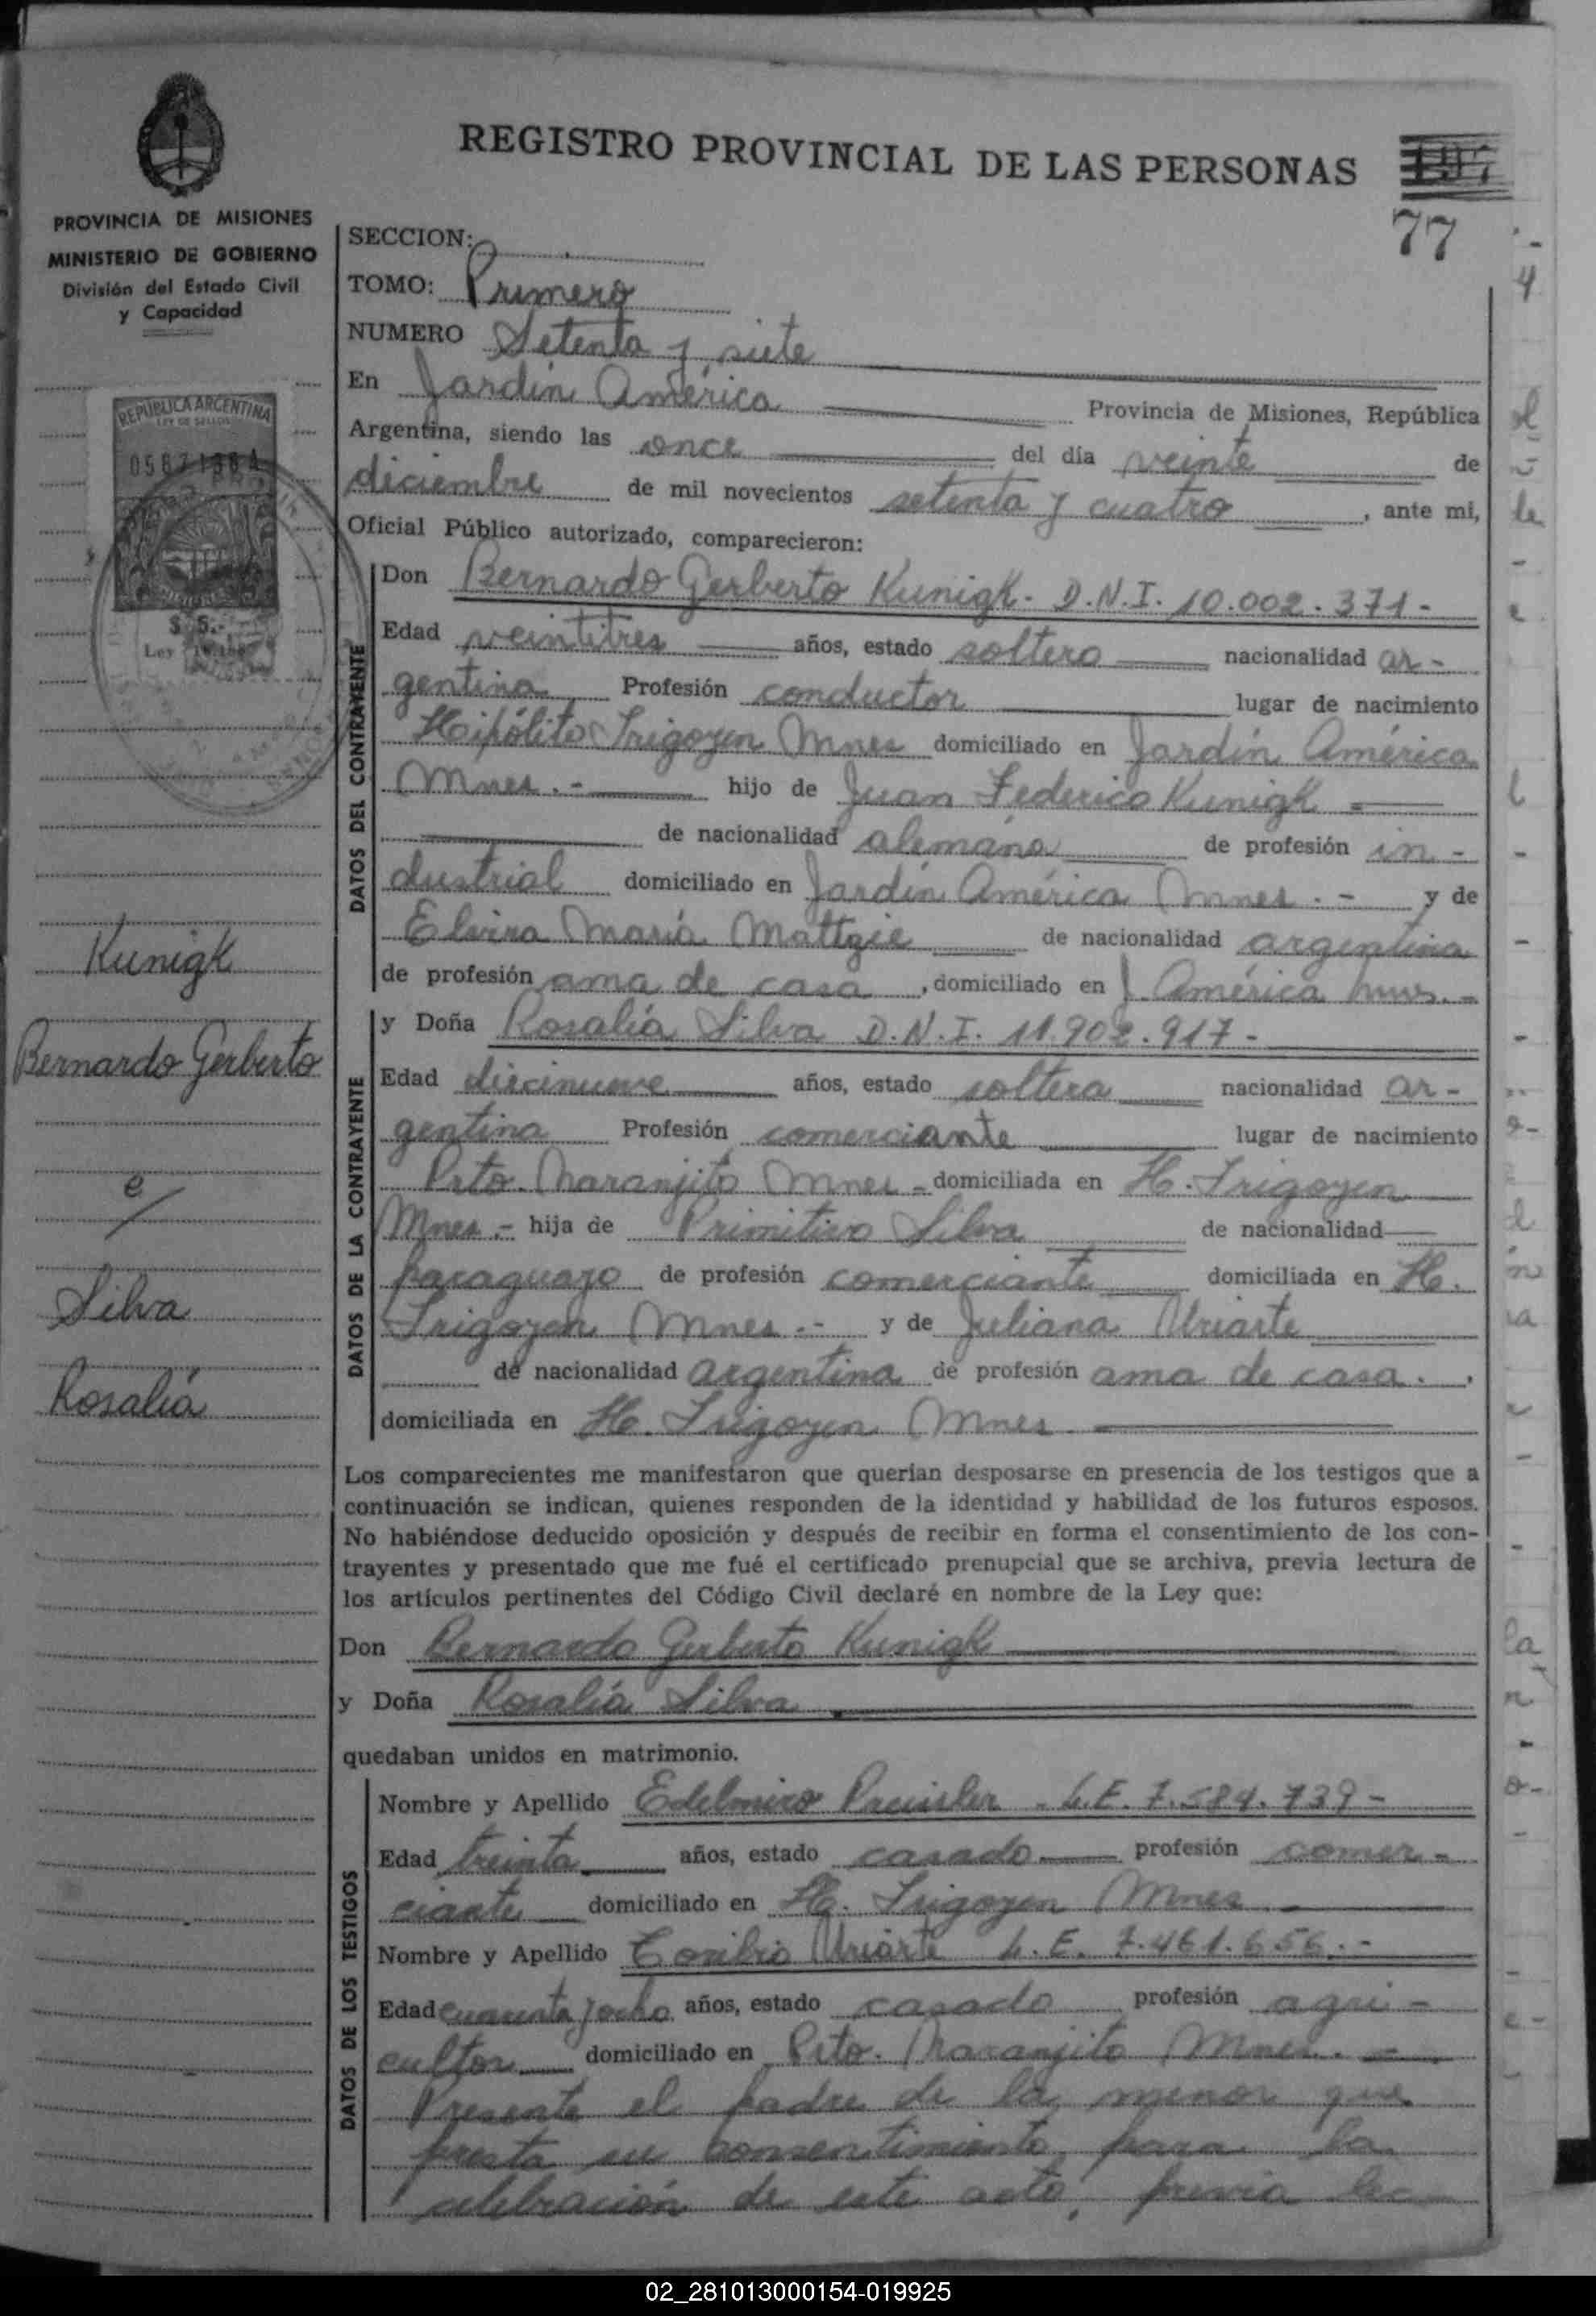 REGISTRO PROVINCIAL DE LAS PERSONAS
77
PROVINCIA DE MISIONES
MINISTERIO DE GOBIERNO
División del Estado Civil
y Capacidad
REPUBLICA ARGENTINA
LEY DE SELLOS
MISIONES
$ 5.-
Ley
Kunigk
Bernardo Gerberto
e/
Silva
Rosalía
SECCION:
TOMO: Primero
NUMERO Setenta y siete
En Jardín América Provincia de Misiones, República
Argentina, siendo las once del día veinte de
diciembre de mil novecientos setenta y cuatro, ante mi,
Oficial Público autorizado, comparecieron:
DATOS DEL CONTRAYENTE
Don Bernardo Gerberto Kunigk - D.N.I. 10.002.371-
Edad veintitres años, estado soltero nacionalidad ar-
gentina Profesión conductor lugar de nacimiento
Hipólito Irigoyen Mnes domiciliado en Jardín América
Mnes.- hijo de Juan Federico Kunigk -
de nacionalidad alemana de profesión in-
dustrial domiciliado en Jardín América Mnes.- y de
Elvira María Mattzie de nacionalidad argentina
de profesión ama de casa, domiciliado en J. América Mnes.-
DATOS DE LA CONTRAYENTE
y Doña Rosalía Silva D.N.I. 11.902.917-
Edad diecinueve años, estado soltera nacionalidad ar-
gentina Profesión comerciante lugar de nacimiento
Psto. Naranjito Mnes - domiciliada en H. Irigoyen
Mnes.- hija de Primitivo Silva de nacionalidad
paraguayo de profesión comerciante domiciliada en H.
Irigoyen Mnes.- y de Juliana Uriarte
de nacionalidad argentina de profesión ama de casa.,
domiciliada en H. Irigoyen Mnes
Los comparecientes me manifestaron que querían desposarse en presencia de los testigos que a
continuación se indican, quienes responden de la identidad y habilidad de los futuros esposos.
No habiéndose deducido oposición y después de recibir en forma el consentimiento de los con-
trayentes y presentado que me fué el certificado prenupcial que se archiva, previa lectura de
los artículos pertinentes del Código Civil declaré en nombre de la Ley que:
Don Bernardo Gerberto Kunigk
y Doña Rosalía Silva
quedaban unidos en matrimonio.
DATOS DE LOS TESTIGOS
Nombre y Apellido Edelmiro Preisler - L.E. 7.584.739-
Edad treinta años, estado casado profesión comer-
ciante domiciliado en H. Irigoyen Mnes
Nombre y Apellido Toribio Uriarte L.E. 7.461.656.-
Edad cuarenta y ocho años, estado casado profesión agri-
cultor domiciliado en Psto. Naranjito Mnes.-
Presente el padre de la menor que
presta su consentimiento para la
celebración de este acto, previa lec-
02_281013000154-019925